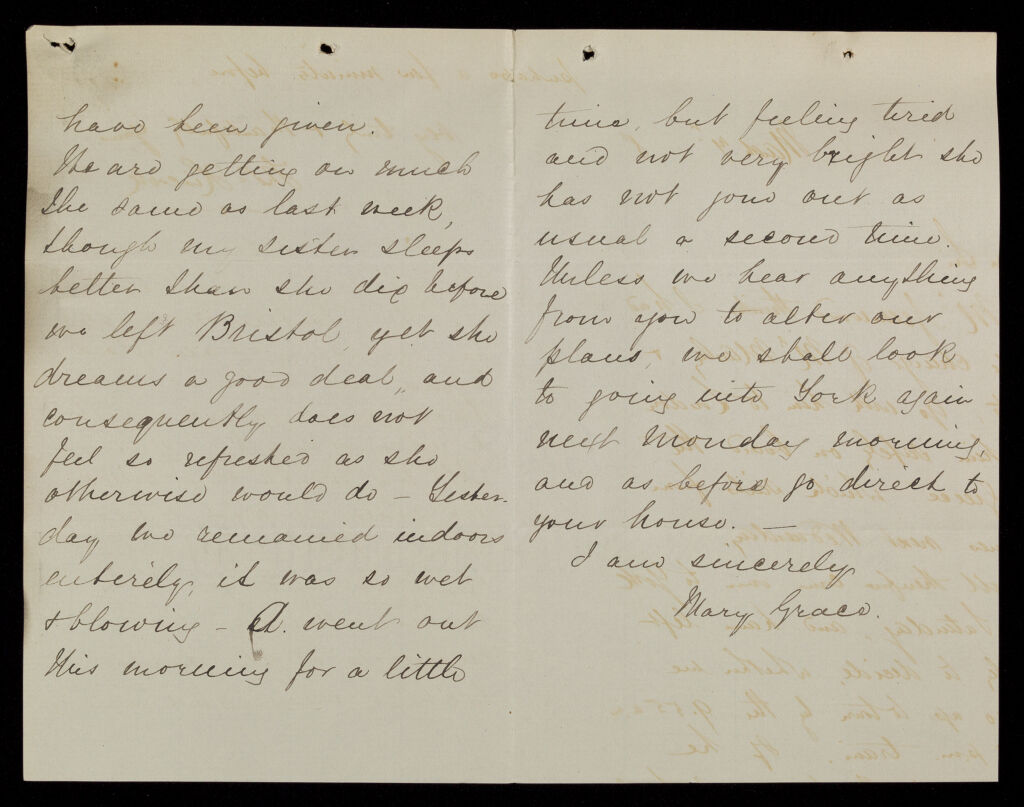 have been given.
We are getting on much
the same as last week,
though my sister sleeps
better than she did before
we left Bristol, yet she
dreams a good deal, and
consequently does not
feel so refreshed as she
otherwise would do – Yester-
day we remained indoors
entirely, it was so wet
& blowing – A. went out
this morning for a little
time, but feeling tired
and not very bright she
has not gone out as
usual a second time.
Unless we hear anything
from you to alter our
plans, we shall look
to going into York again
next Monday morning,
and as before go direct to
your house. —
I am sincerely
Mary Grace.